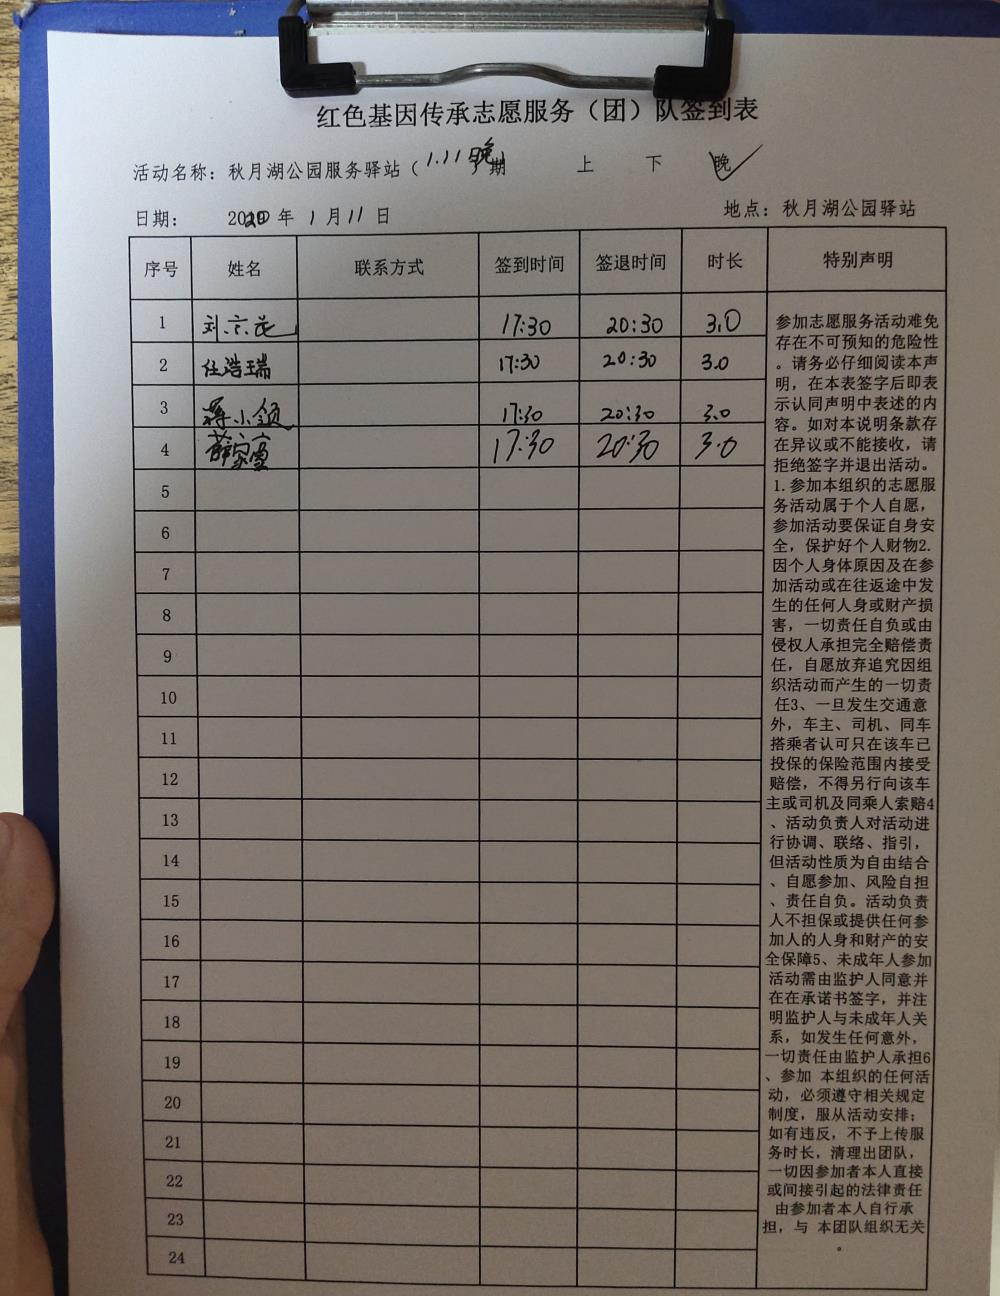 红色基因传承志愿服务（团）队签到表
活动名称：秋月湖公园服务驿站（1.11晚）期 上 下 晚✓
日期： 2020年 1月11日 地点：秋月湖公园驿站
序号 姓名 联系方式 签到时间 签退时间 时长 特别声明
1 17:30 20:30 3.0
2 任浩瑞 17:30 20:30 3.0
3 蒋小领 17:30 20:30 3.0
4 薛家富 17:30 20:30 3.0
5
6
7
8
9
10
11
12
13
14
15
16
17
18
19
20
21
22
23
24
参加志愿服务活动难免
存在不可预知的危险性
。请务必仔细阅读本声
明，在本表签字后即表
示认同声明中表述的内
容。如对本说明条款存
在异议或不能接收，请
拒绝签字并退出活动。
1.参加本组织的志愿服
务活动属于个人自愿，
参加活动要保证自身安
全，保护好个人财物2.
因个人身体原因及在参
加活动或在往返途中发
生的任何人身或财产损
害，一切责任自负或由
侵权人承担完全赔偿责
任，自愿放弃追究因组
织活动而产生的一切责
任3、一旦发生交通意
外，车主、司机、同车
搭乘者认可只在该车已
投保的保险范围内接受
赔偿，不得另行向该车
主或司机及同乘人索赔4
、活动负责人对活动进
行协调、联络、指引，
但活动性质为自由结合
、自愿参加、风险自担
、责任自负。活动负责
人不担保或提供任何参
加人的人身和财产的安
全保障5、未成年人参加
活动需由监护人同意并
在在承诺书签字，并注
明监护人与未成年人关
系，如发生任何意外，
一切责任由监护人承担6
、参加 本组织的任何活
动，必须遵守相关规定
制度，服从活动安排；
如有违反，不予上传服
务时长，清理出团队，
一切因参加者本人直接
或间接引起的法律责任
由参加者本人自行承
担，与 本团队组织无关
。